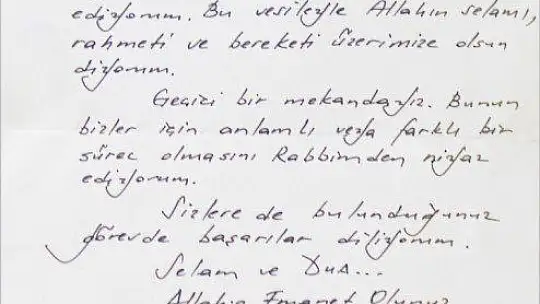 ediyorum. Bu vesileyle Allahın selamı,
rahmeti ve bereketi üzerimize olsun
diyorum.
Geçici bir mekandayız. Bunun
bizler için anlamlı veya farklı bir
süreç olmasını Rabbimden niyaz
ediyorum.
Sizlere de bulunduğunuz
görevde başarılar diliyorum.
Selam ve Dua...
Allaha Emanet Olunuz